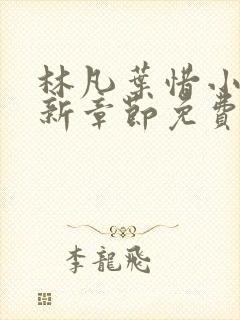 林凡葉惜小
新章節免費
李龍飛